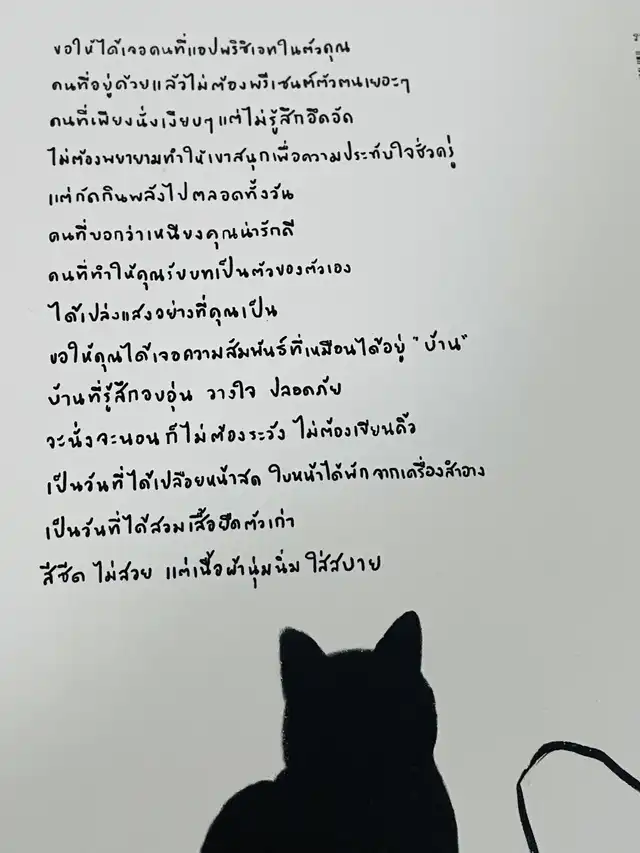 ขอให้ได้เจอคนที่แอปพริชิเอทในตัวคุณ
คนที่อยู่ด้วยแล้วไม่ต้องพรีเซนต์ตัวตนเยอะๆ
คนที่เพียงนั่งเงียบๆ แต่ไม่รู้สึกอึดอัด
ไม่ต้องพยายามทำให้เขาสนุกเพื่อความประทับใจชั่วครู่
แต่กัดกินพลังไปตลอดทั้งวัน
คนที่บอกว่าเหนียงคุณน่ารักดี
คนที่ทำให้คุณรับบทเป็นตัวของตัวเอง
ได้เปล่งแสงอย่างที่คุณเป็น
ขอให้คุณได้เจอความสัมพันธ์ที่เหมือนได้อยู่ "บ้าน"
บ้านที่รู้สึกอบอุ่น วางใจ ปลอดภัย
จะนั่งจะนอนก็ไม่ต้องระวัง ไม่ต้องเขียนคิ้ว
เป็นวันที่ได้เปลือยหน้าสด ใบหน้าได้พักจากเครื่องสำอาง
เป็นวันที่ได้สวมเสื้อยืดตัวเก่า
สีซีด ไม่สวย แต่เนื้อผ้านุ่มนิ่ม ใส่สบาย